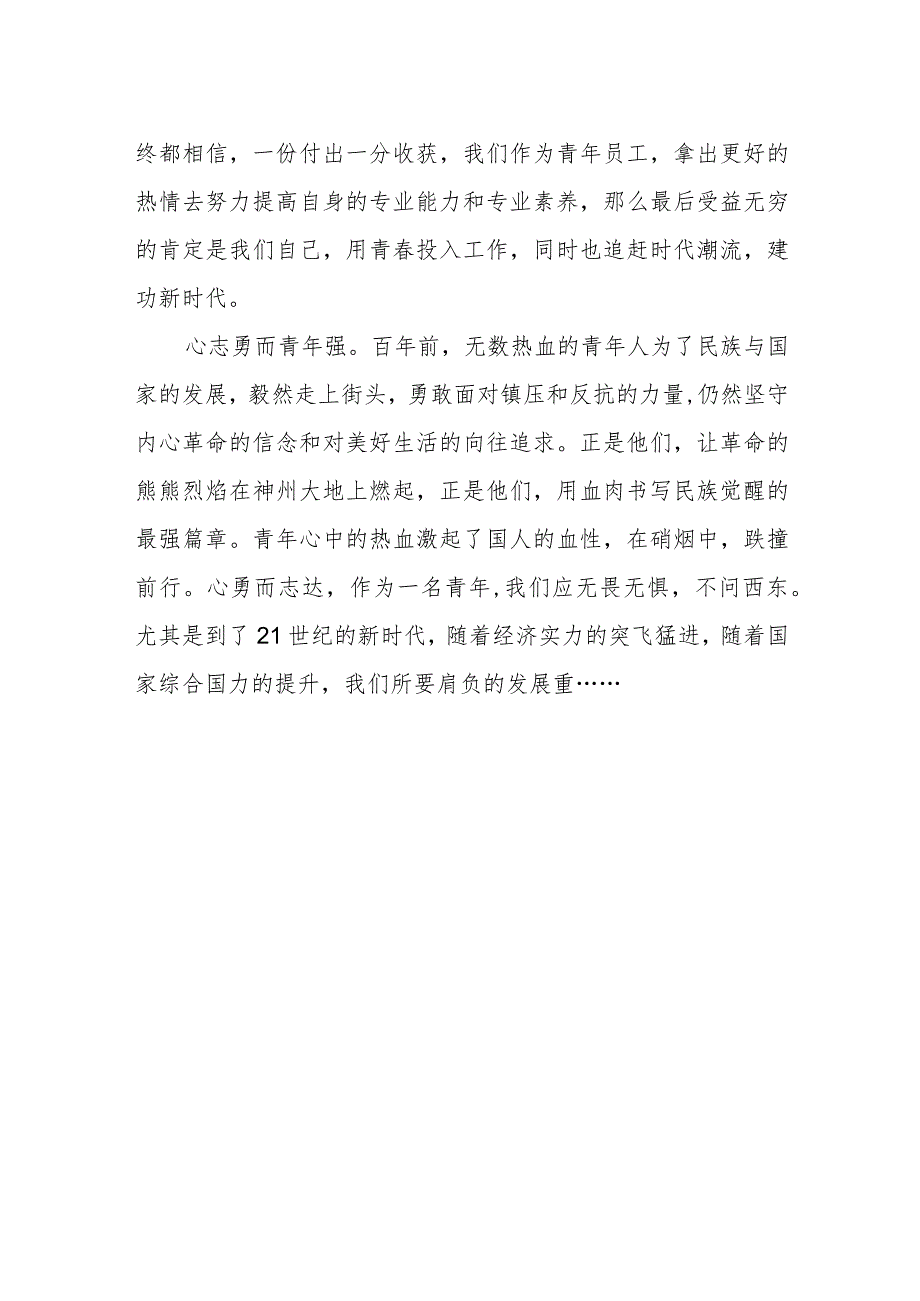 终都相信，一份付出一分收获，我们作为青年员工，拿出更好的
热情去努力提高自身的专业能力和专业素养，那么最后受益无穷
的肯定是我们自己，用青春投入工作，同时也追赶时代潮流，建
功新时代。
心志勇而青年强。百年前，无数热血的青年人为了民族与国
家的发展，毅然走上街头，勇敢面对镇压和反抗的力量,仍然坚守
内心革命的信念和对美好生活的向往追求。正是他们，让革命的
熊熊烈焰在神州大地上燃起，正是他们，用血肉书写民族觉醒的
最强篇章。青年心中的热血激起了国人的血性，在硝烟中，跌撞
前行。心勇而志达，作为一名青年,我们应无畏无惧，不问西东。
尤其是到了21世纪的新时代，随着经济实力的突飞猛进，随着国
家综合国力的提升，我们所要肩负的发展重……